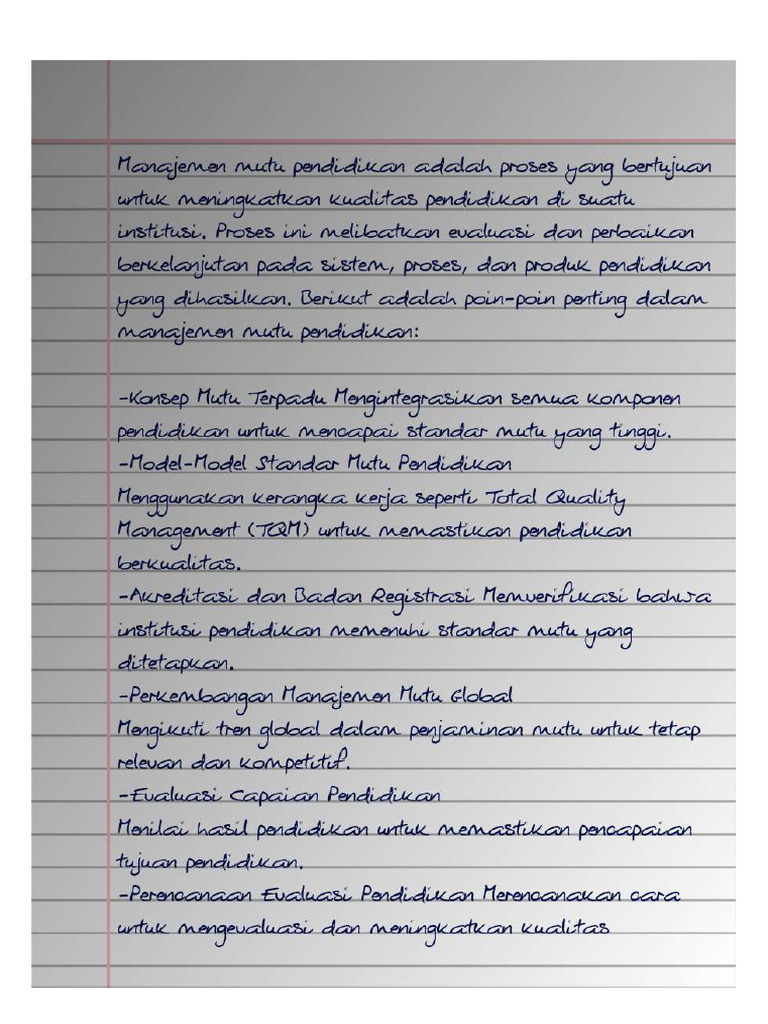 Manajemen mutu pendidikan adalah proses yang bertujuan
untuk meningkatkan kualitas pendidikan di suatu
institusi. Proses ini melibatkan evaluasi dan perbaikan
berkelanjutan pada sistem, proses, dan produk pendidikan
yang dihasilkan. Berikut adalah poin-poin penting dalam
manajemen mutu pendidikan:
-Konsep Mutu Terpadu Mengintegrasikan semua komponen
pendidikan untuk mencapai standar mutu yang tinggi.
-Model-Model Standar Mutu Pendidikan
Menggunakan kerangka kerja seperti Total Quality
Management (TQM) untuk memastikan pendidikan
berkualitas.
-Akreditasi dan Badan Registrasi Memverifikasi bahwa
institusi pendidikan memenuhi standar mutu yang
ditetapkan.
-Perkembangan Manajemen Mutu Global
Mengikuti tren global dalam penjaminan mutu untuk tetap
relevan dan kompetitif.
-Evaluasi Capaian Pendidikan
Menilai hasil pendidikan untuk memastikan pencapaian
tujuan pendidikan.
-Perencanaan Evaluasi Pendidikan Merencanakan cara
untuk mengevaluasi dan meningkatkan kualitas